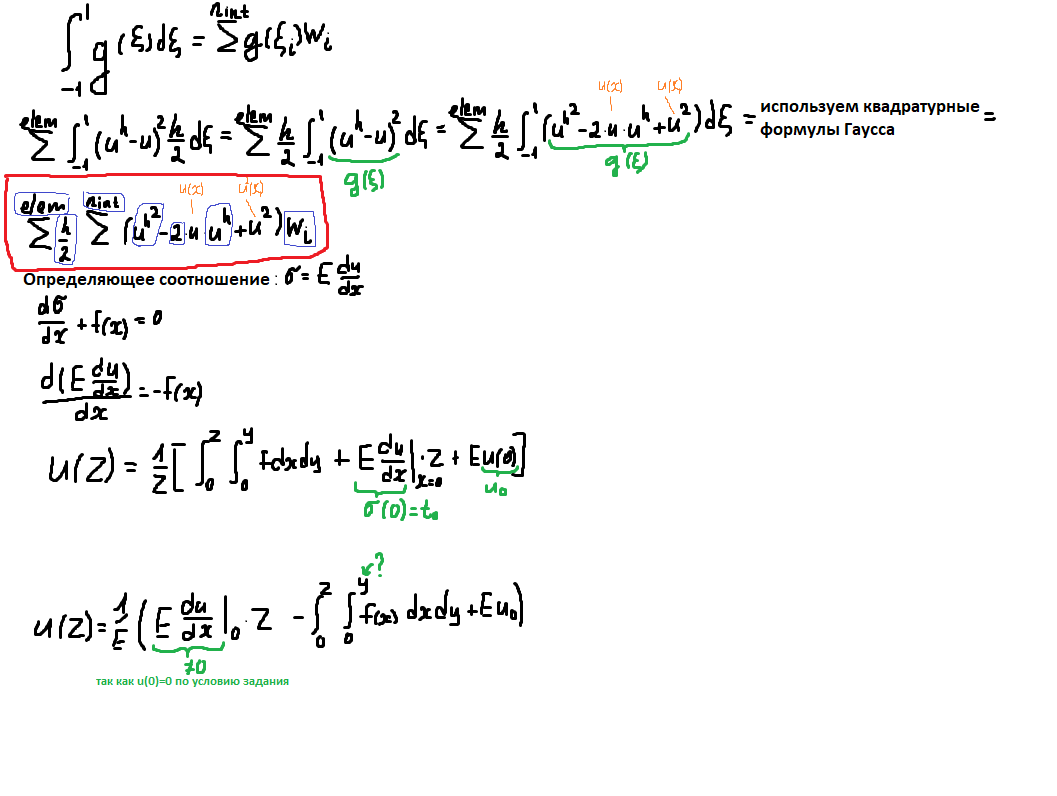 ∫₋₁¹ g(ξ)dξ = Σⁿⁱⁿᵗ g(ξᵢ)Wᵢ
u(x) u(x)
Σᵉˡᵉᵐ ∫₋₁¹ (uʰ-u)² h/2 dξ = Σᵉˡᵉᵐ h/2 ∫₋₁¹ (uʰ-u)² dξ = Σᵉˡᵉᵐ h/2 ∫₋₁¹ (uʰ²-2·u·uʰ+u²)dξ = используем квадратурные формулы Гаусса =
g(ξ) g(ξ)
u(x) u(x)
Σᵉˡᵉᵐ h/2 Σⁿⁱⁿᵗ (uʰ²-2·u·uʰ+u²)Wᵢ
Определяющее соотношение : σ = E du/dx
dσ/dx + f(x) = 0
d(E du/dx)/dx = -f(x)
u(z) = 1/z [ ∫₀ᶻ ∫₀ʸ fdxdy + E du/dx|ₓ₌₀ · z + Eu(0) ]
σ(0)=t₀ u₀
?
u(z) = 1/E ( E du/dx|₀ · z - ∫₀ᶻ ∫₀ʸ f(x) dxdy + Eu₀ )
≠0
так как u(0)=0 по условию задания